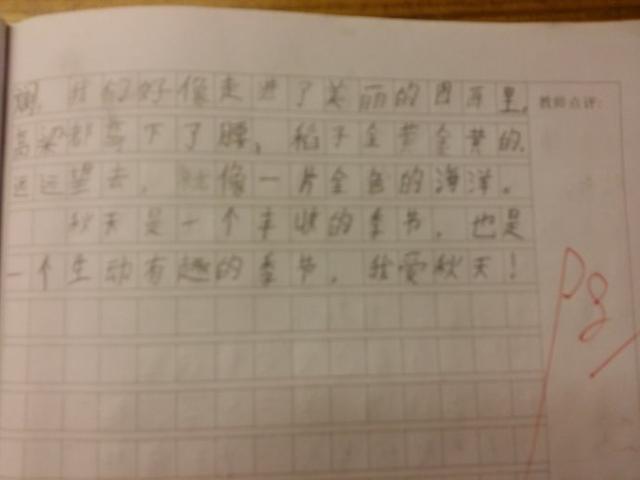 我们好像走进了美丽的图画里,
高粱都弯下了腰,稻子金黄金黄的,
远远望去,就像一片金色的海洋。
秋天是一个丰收的季节,也是
一个生动有趣的季节,我爱秋天!
教师点评: